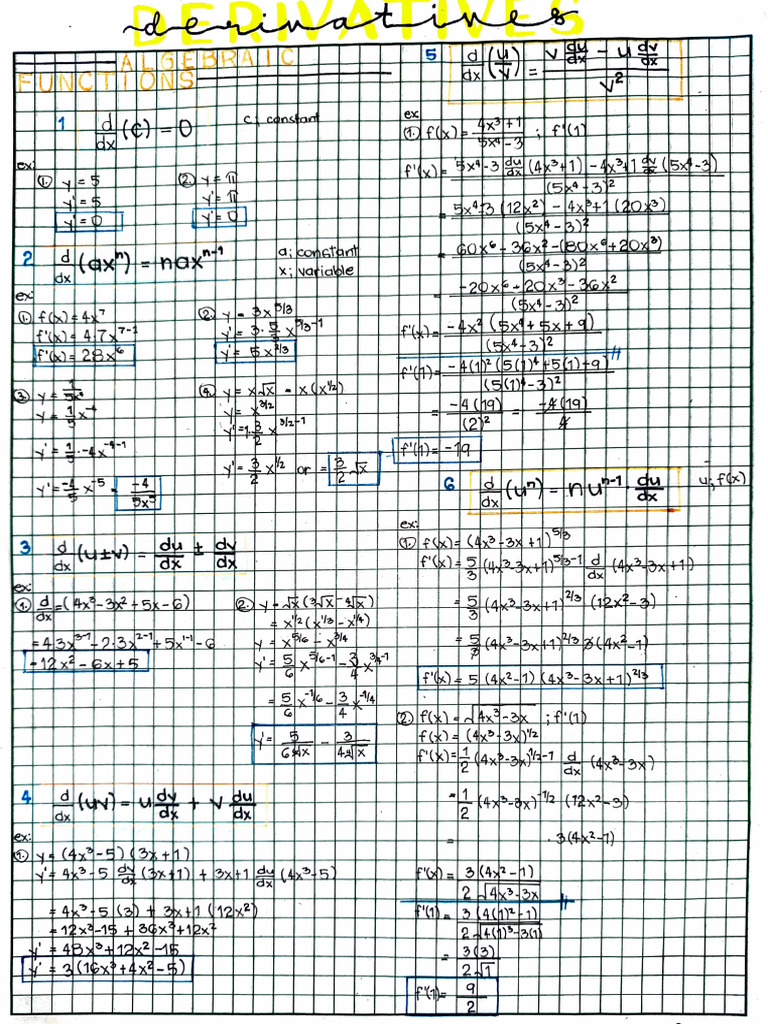 DERIVATIVES
derivatives
ALGEBRAIC
FUNCTIONS
1 d/dx (c) = 0 c; constant
ex:
1. y = 5
y' = 5
y' = 0
2. y = π
y' = π
y' = 0
2 d/dx (ax^n) = nax^(n-1)
a; constant
x; variable
ex:
1. f(x) = 4x^7
f'(x) = 4·7x^(7-1)
f'(x) = 28x^6
2. y = 3x^(5/3)
y' = 3·5/3 x^(5/3-1)
y' = 5x^(2/3)
3. y = 1/5x^4
y = 1/5 x^-4
y' = 1/5 · -4x^(-4-1)
y' = -4/5 x^-5 = -4/5x^5
4. y = x√x = x(x^(1/2))
y = x^(3/2)
y' = 1·3/2 x^(3/2-1)
y' = 3/2 x^(1/2) or = 3/2 √x
3 d/dx (u±v) = du/dx ± dv/dx
ex:
1. d/dx = (4x^3 - 3x^2 + 5x - 6)
= 4·3x^(3-1) - 2·3x^(2-1) + 5x^(1-1) - 6
= 12x^2 - 6x + 5
2. y = √x (3√x - 4√x)
= x^(1/2) (x^(1/3) - x^(1/4))
y = x^(5/6) - x^(3/4)
y' = 5/6 x^(5/6-1) - 3/4 x^(3/4-1)
= 5/6 x^(-1/6) - 3/4 x^(-1/4)
y' = 5/6 6√x - 3/4 4√x
4 d/dx (uv) = u dv/dx + v du/dx
ex:
1. y = (4x^3 - 5)(3x + 1)
y' = 4x^3 - 5 dv/dx (3x + 1) + 3x + 1 du/dx (4x^3 - 5)
= 4x^3 - 5 (3) + 3x + 1 (12x^2)
= 12x^3 - 15 + 36x^3 + 12x^2
y' = 48x^3 + 12x^2 - 15
y' = 3(16x^3 + 4x^2 - 5)
5 d/dx (u/v) = v du/dx - u dv/dx / v^2
ex
1. f(x) = 4x^3 + 1 / 5x^4 - 3 ; f'(1)
f'(x) = 5x^4 - 3 du/dx (4x^3 + 1) - 4x^3 + 1 dv/dx (5x^4 - 3) / (5x^4 - 3)^2
= 5x^4 - 3 (12x^2) - 4x^3 + 1 (20x^3) / (5x^4 - 3)^2
= 60x^6 - 36x^2 - (80x^6 + 20x^3) / (5x^4 - 3)^2
= -20x^6 + 20x^3 - 36x^2 / (5x^4 - 3)^2
f'(x) = -4x^2 (5x^4 + 5x + 9) / (5x^4 - 3)^2
f'(1) = -4(1)^2 (5(1)^4 + 5(1) + 9) / (5(1)^4 - 3)^2
= -4(19) / (2)^2 = -4(19) / 4
f'(1) = -19
6 d/dx (u^n) = nu^(n-1) · du/dx u; f(x)
ex:
1. f(x) = (4x^3 - 3x + 1)^(5/3)
f'(x) = 5/3 (4x^3 - 3x + 1)^(5/3-1) d/dx (4x^3 - 3x + 1)
= 5/3 (4x^3 - 3x + 1)^(2/3) (12x^2 - 3)
= 5/3 (4x^3 - 3x + 1)^(2/3) 3(4x^2 - 1)
f'(x) = 5(4x^2 - 1)(4x^3 - 3x + 1)^(2/3)
2. f(x) = √4x^3 - 3x ; f'(1)
f(x) = (4x^3 - 3x)^(1/2)
f'(x) = 1/2 (4x^3 - 3x)^(1/2-1) d/dx (4x^3 - 3x)
= 1/2 (4x^3 - 3x)^(-1/2) (12x^2 - 3)
= · 3(4x^2 - 1)
f'(x) = 3(4x^2 - 1) / 2√4x^3 - 3x
f'(1) = 3(4(1)^2 - 1) / 2√4(1)^3 - 3(1)
= 3(3) / 2√1
f'(1) = 9/2